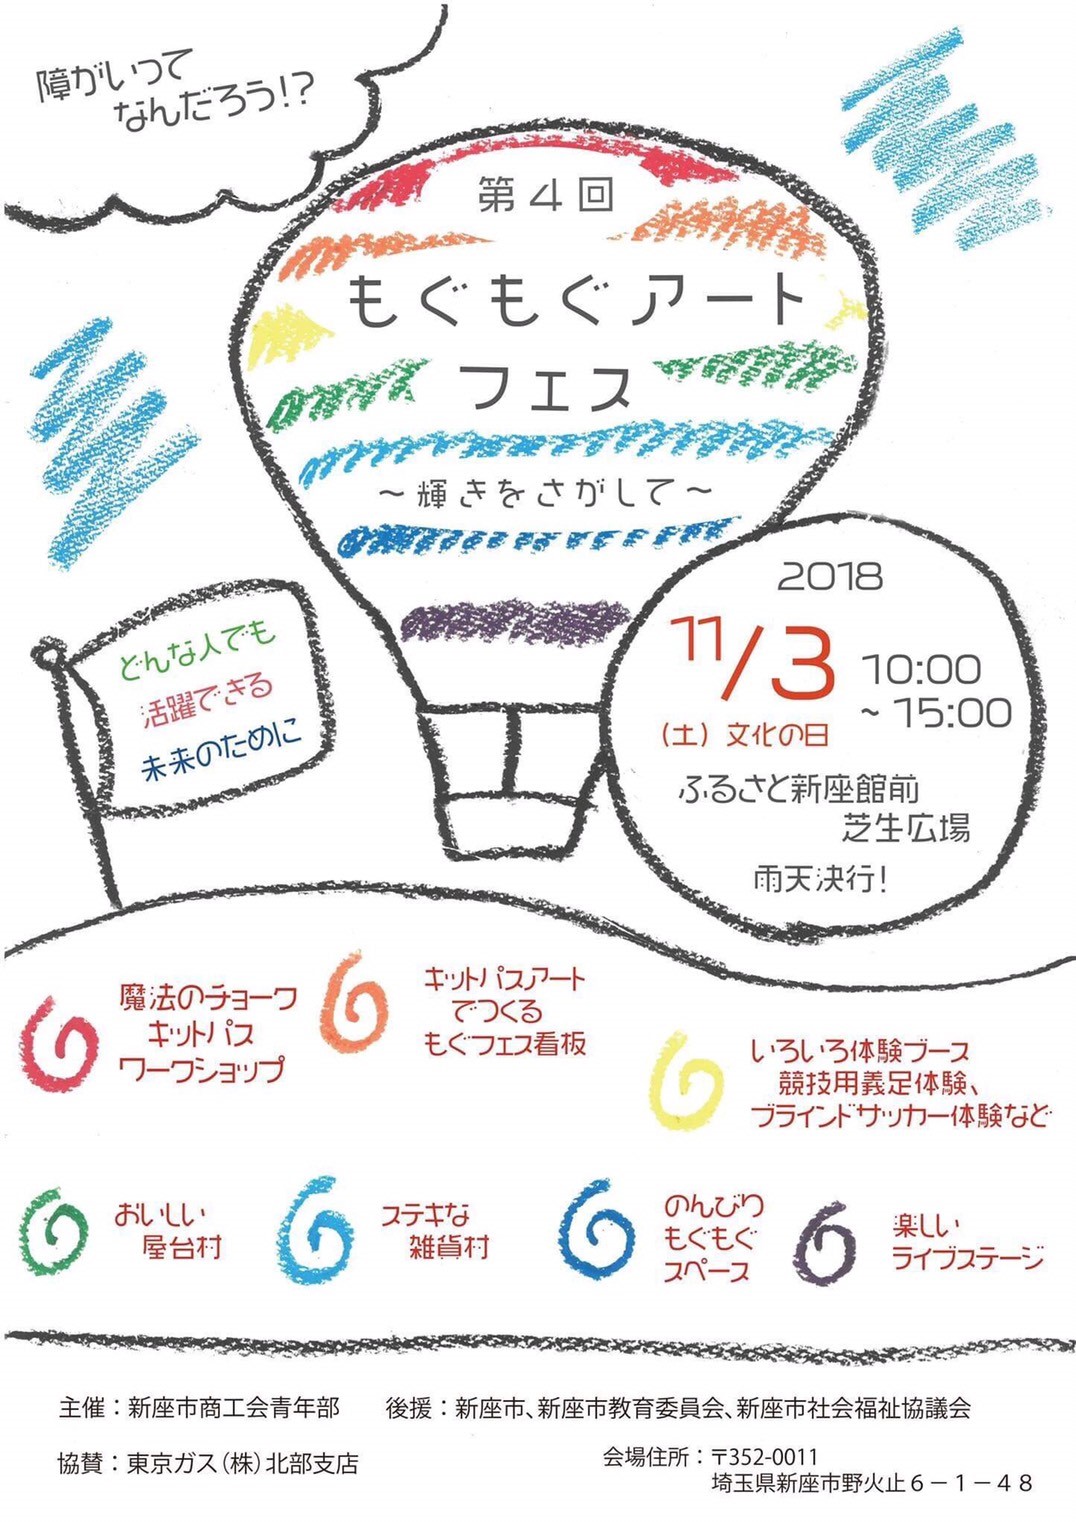 障がいって
なんだろう!?
第4回
もぐもぐアート
フェス
～輝きをさがして～
2018
11/3
(土) 文化の日
10:00
~ 15:00
ふるさと新座館前
芝生広場
雨天決行!
どんな人でも
活躍できる
未来のために
魔法のチョーク
キットパス
ワークショップ
キットパスアート
でつくる
もぐフェス看板
いろいろ体験ブース
競技用義足体験、
ブラインドサッカー体験など
おいしい
屋台村
ステキな
雑貨村
のんびり
もぐもぐ
スペース
楽しい
ライブステージ
主催：新座市商工会青年部
後援：新座市、新座市教育委員会、新座市社会福祉協議会
協賛：東京ガス（株）北部支店
会場住所：〒352-0011
埼玉県新座市野火止６－１－４８